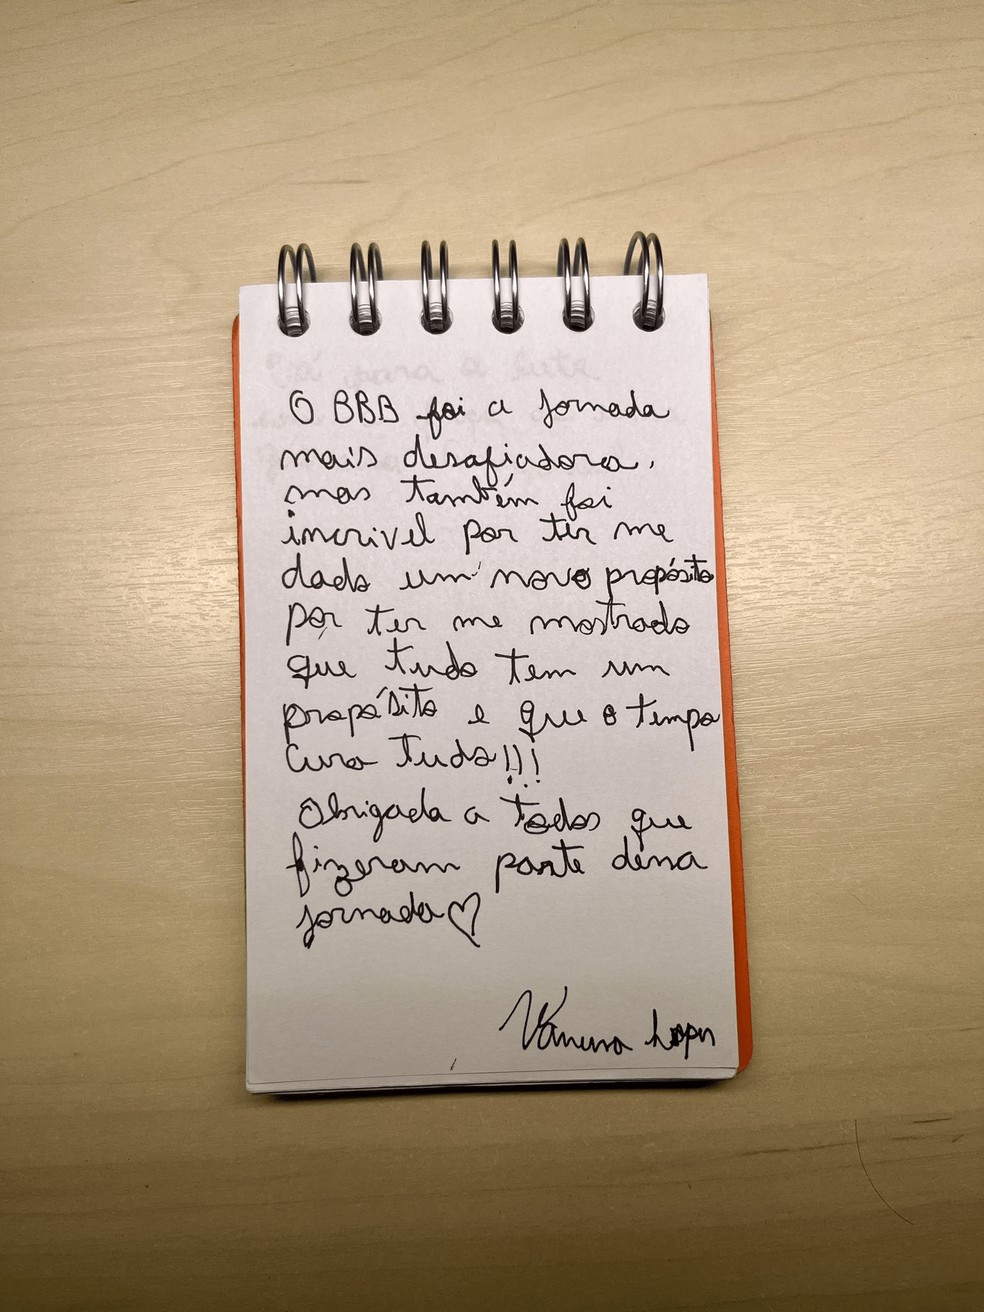 O BBB foi a jornada
mais desafiadora,
mas também foi
incrivel por ter me
dado um novo propósito
por ter me mostrado
que tudo tem um
propósito e que o tempo
cura tudo!!!
Obrigada a todos que
fizeram parte dessa
jornada♡
Vanessa Lopes